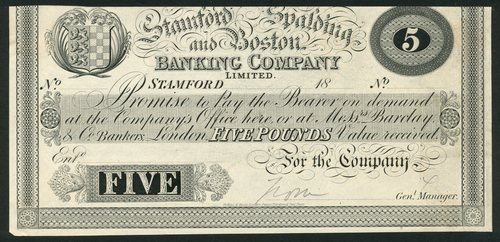 Stamford Spalding
and Boston
BANKING COMPANY
LIMITED.
5
No STAMFORD 18 No
Promise to Pay the Bearer on demand
at the Company's Office here, or at Messrs. Barclay
& Co. Bankers London, FIVE POUNDS Value received.
Entd.
For the Company
FIVE
Genl. Manager.